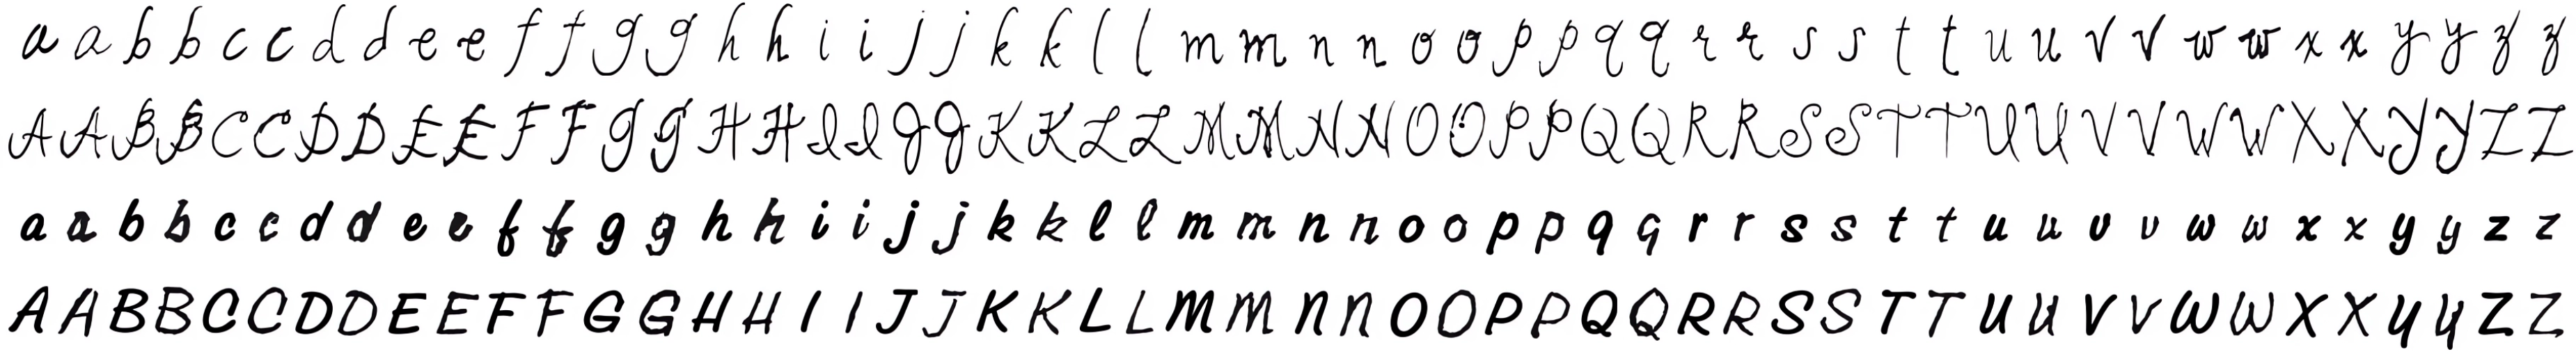 a a b b c c d d e e f f g g h h i i j j k k l l m m n n o o p p q q r r s s t t u u v v w w x x y y z z
A A B B C C D D E E F F G G H H I I J J K K L L M M N N O O P P Q Q R R S S T T U U V V W W X X Y Y Z Z
a a b b c c d d e e f f g g h h i i j j k k l l m m n n o o p p q q r r s s t t u u v v w w x x y y z z
A A B B C C D D E E F F G G H H I I J J K K L L M M N N O O P P Q Q R R S S T T U U V V W W X X Y Y Z Z